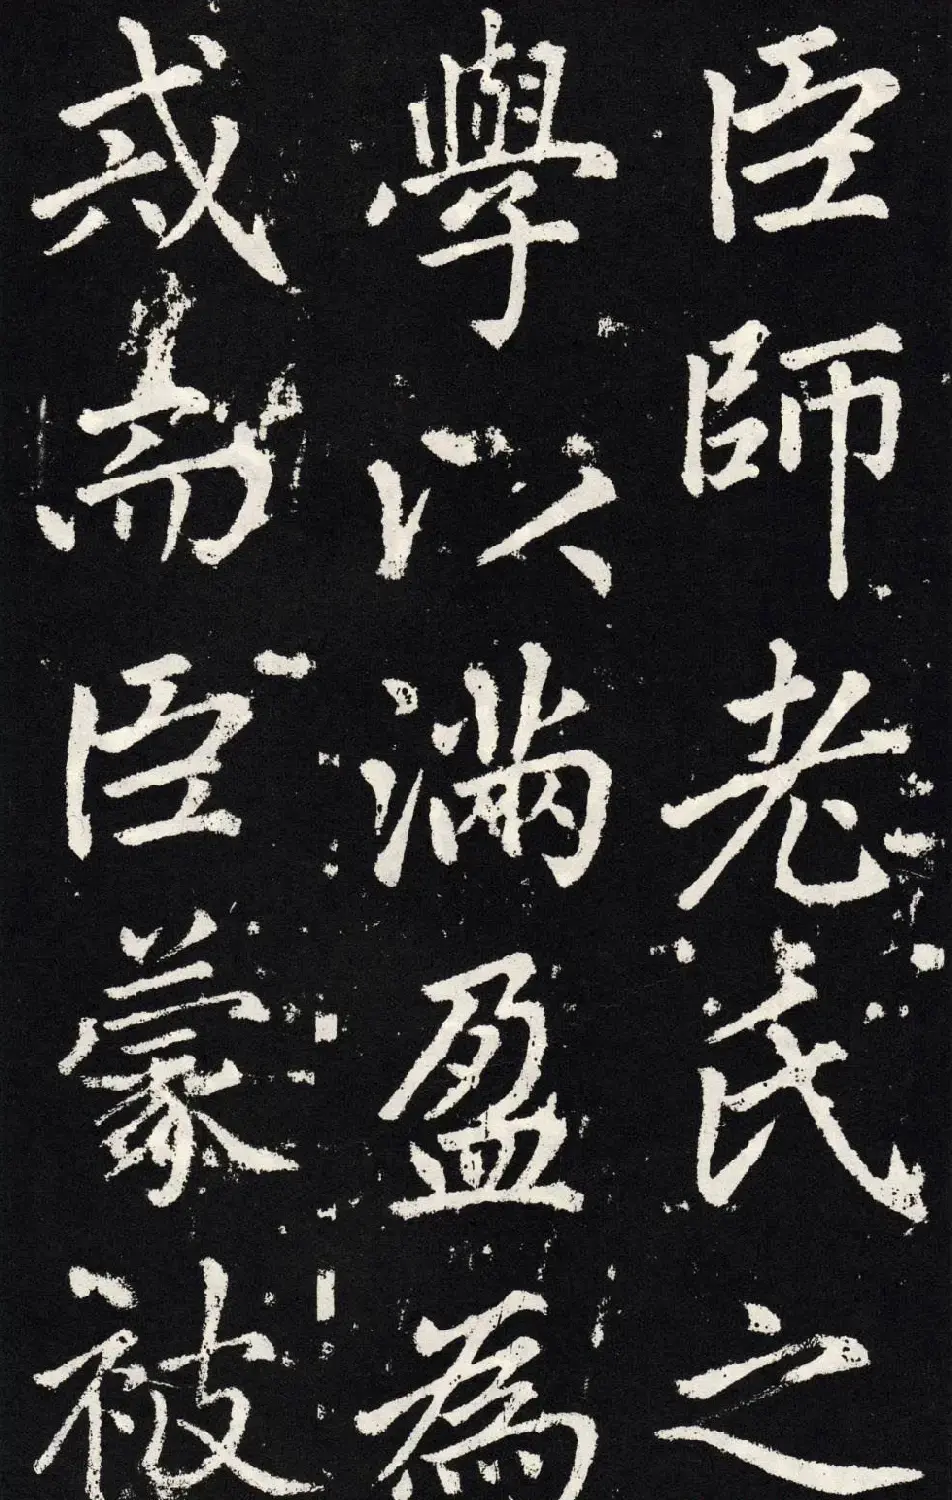 臣師老氏之
學以滿盈為
戒而臣蒙被